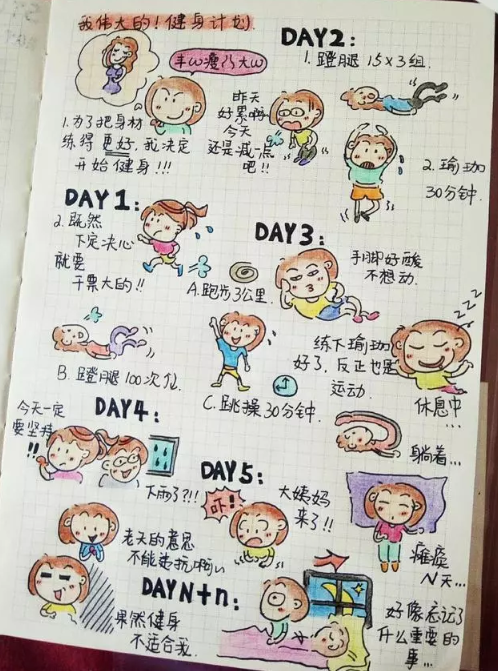 我伟大的!健身计划.
丰ω瘦乃大ω
1.为了把身材
练得更好,我决定
开始健身!!!
DAY1:
2.既然
下定决心
就要
干票大的!!
A.跑步3公里.
B.蹬腿100次位.
C.跳操30分钟.
DAY2:
1.蹬腿15×3组.
昨天
好累啊
今天
还是减一点
吧!!
2.瑜珈
30分钟.
DAY3:
手脚好酸
不想动.
练下瑜珈
好了,反正也是
运动.
zzz
休息中
...
躺着...
DAY4:
今天一定
要坚持
!!
下雨了?!!
老天的意思
不能违抗啊~
DAY5:
吓!!
大姨妈
来了!!
瘫痪
N天...
DAYN+n:
果然健身
不适合我.
好像忘记了
什么重要的
事...